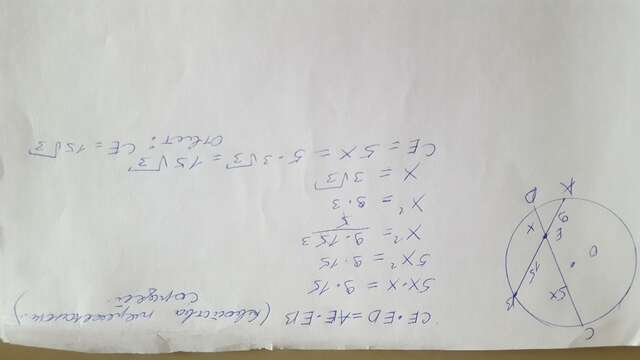 CE·ED=AE·EB (свойства пересекающ.
хорд)
5x·x = 9·15
5x² = 9·15
x² = 9·15 3
5
x² = 9·3
x = 3√3
CE = 5x = 5·3√3 = 15√3
Ответ: CE = 15√3
C
5x
B
15
O
E
x
9
D
A